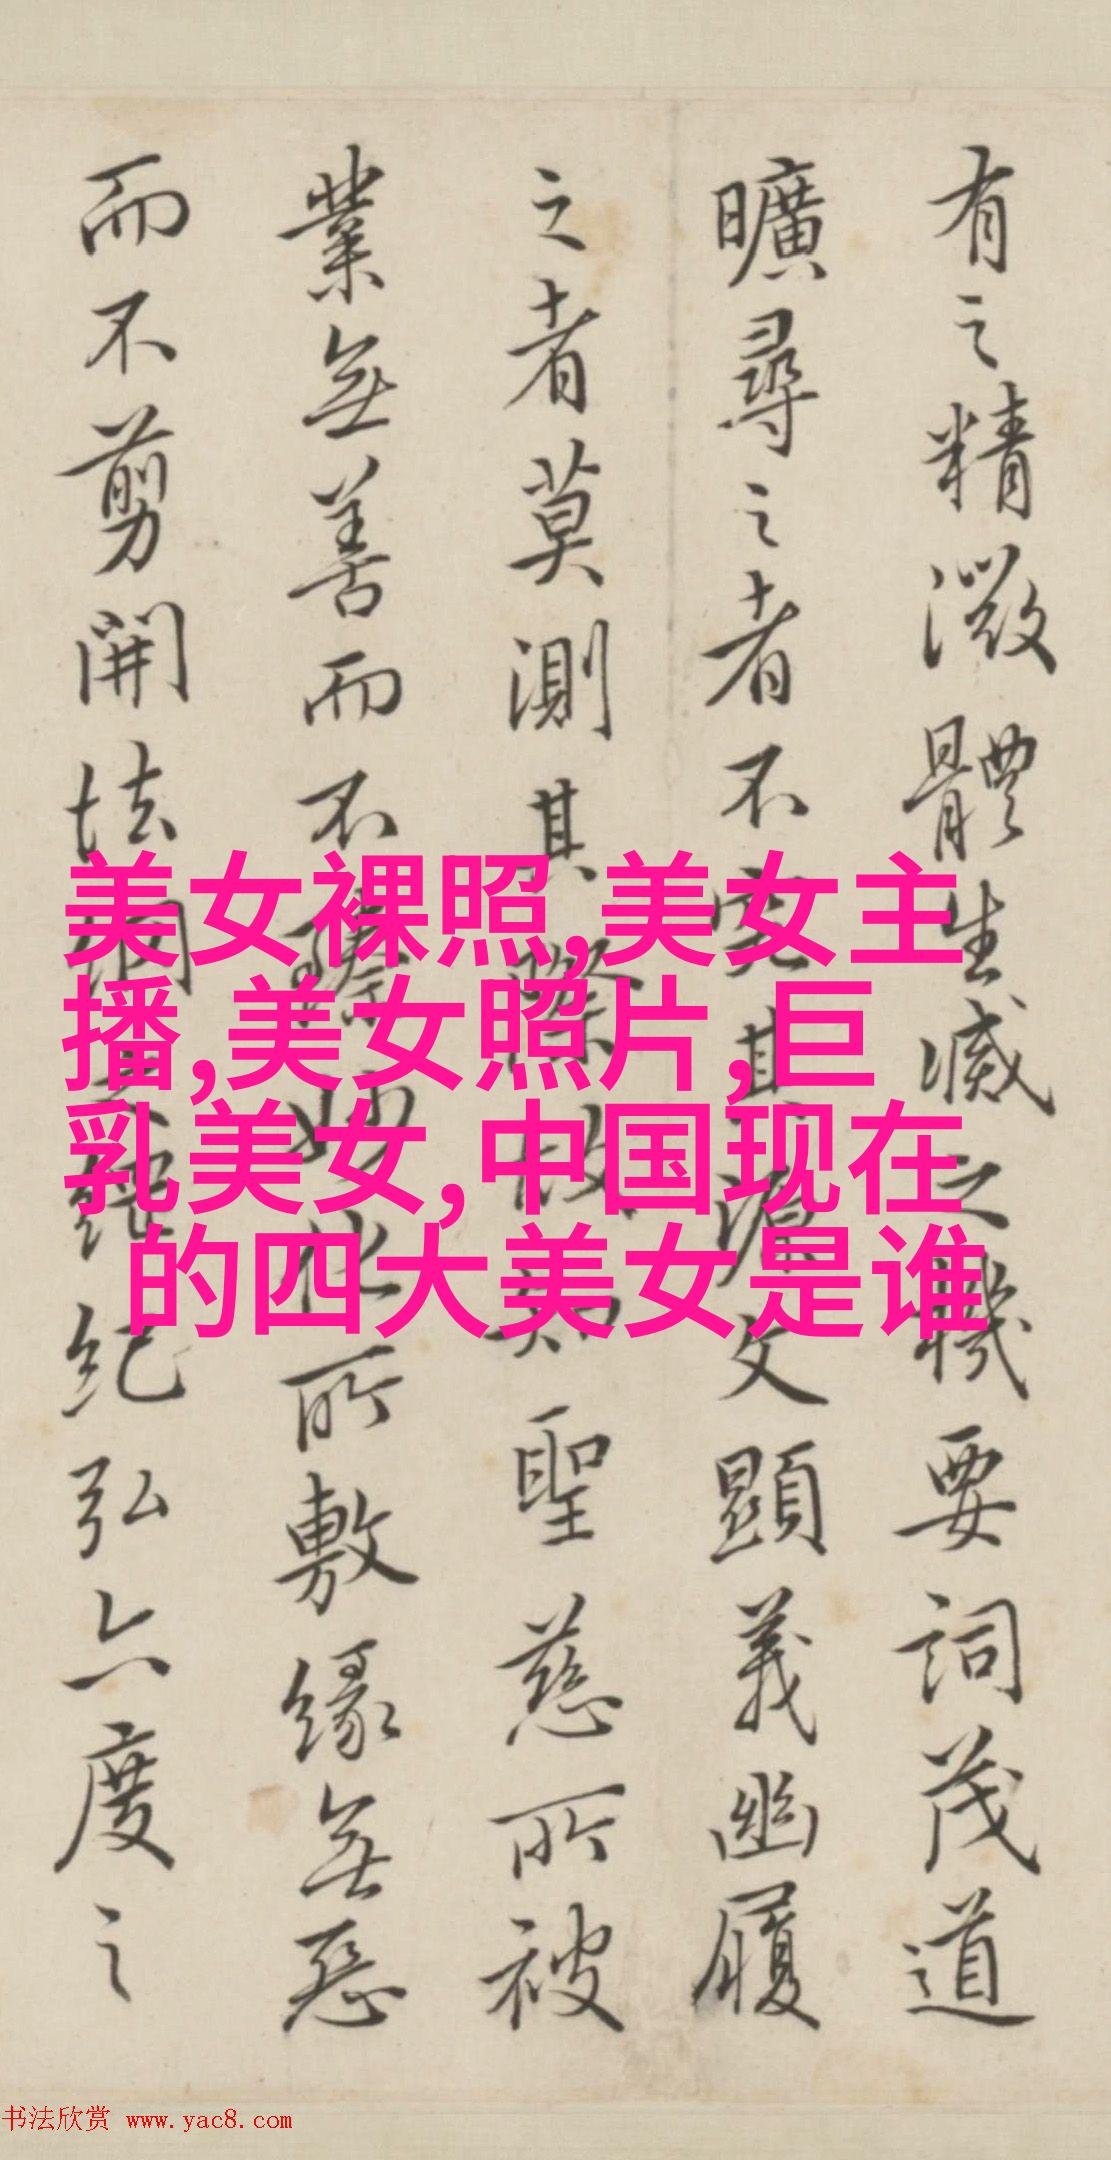 有之精微體生滅之機要詞茂道
曠尋之者不究其源文顯義幽履
之者莫測其際故知聖慈所被
業無善而不臻妙化所敷緣無惡
而不剪開法網之綱紀弘六度之
美女裸照,美女主
播,美女照片,巨
乳美女,中国现在
的四大美女是谁
书法欣赏 www.yac8.com